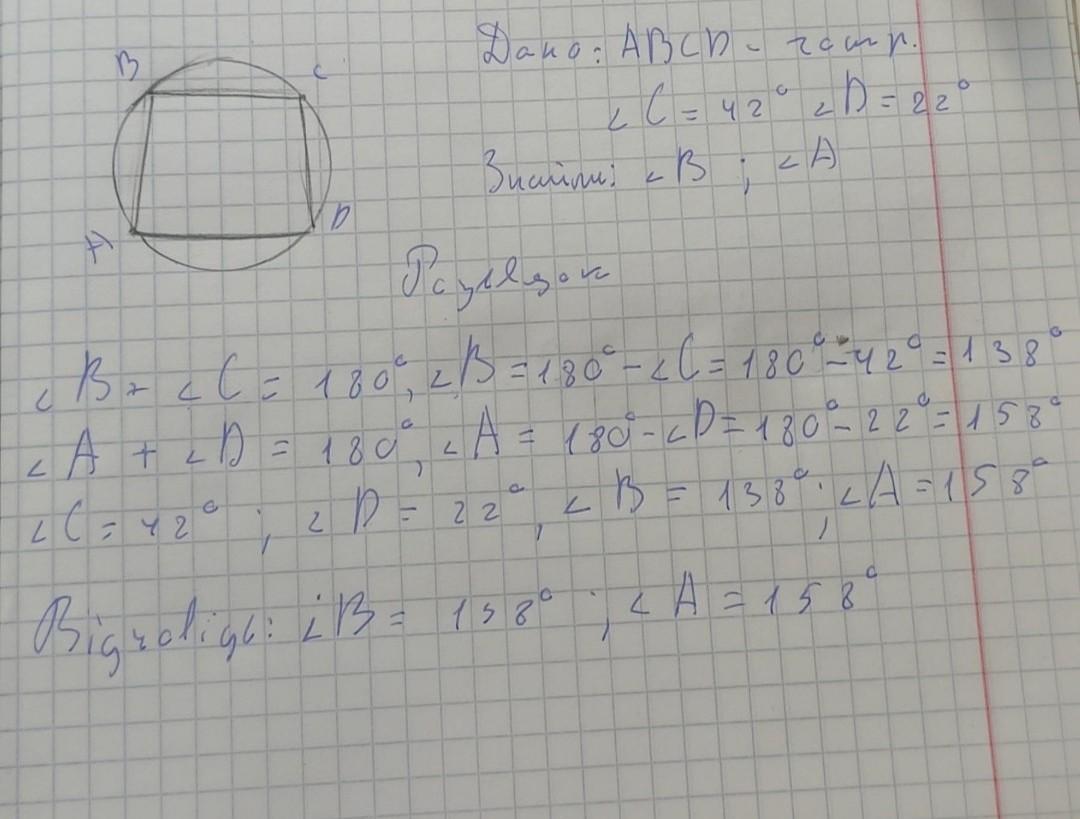 B
C
A
D
Дано: ABCD - чотир.
∠C = 42° ∠D = 22°
Знайти: ∠B ; ∠A
Розв'язок
∠B + ∠C = 180°, ∠B = 180° - ∠C = 180° - 42° = 138°
∠A + ∠D = 180°, ∠A = 180° - ∠D = 180° - 22° = 158°
∠C = 42° ; ∠D = 22°, ∠B = 138° ; ∠A = 158°
Відповідь: ∠B = 158° ; ∠A = 158°